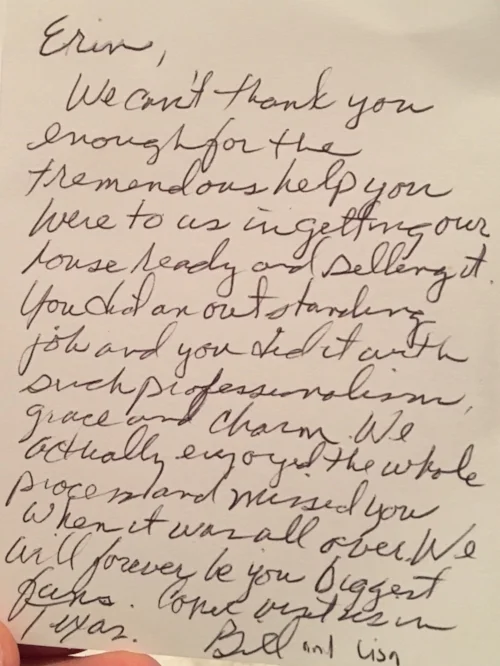 Erin,
We can't thank you
enough for the
tremendous help you
were to us in getting our
house ready and selling it.
You did an outstanding
job and you did it with
such professionalism,
grace and charm. We
actually enjoyed the whole
process and missed you
when it was all over. We
will forever be you biggest
fans. Come visit us in
Texas.
Bill and Lisa